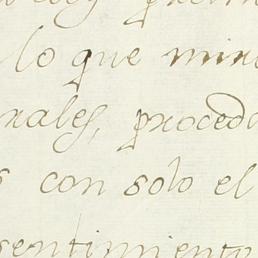 lo que mira
rales, proceda
con solo el
sentimiento